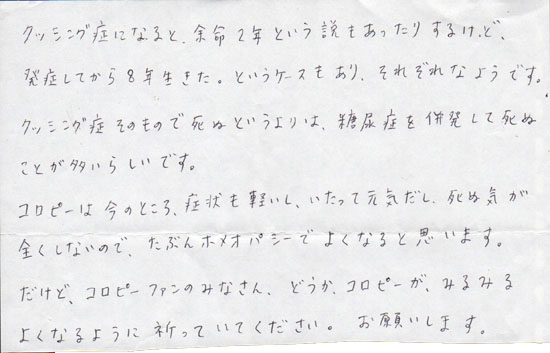 クッシング症になると、余命2年という説もあったりするけど、
発症してから8年生きた。というケースもあり、それぞれなようです。
クッシング症そのもので死ぬというよりは、糖尿症を併発して死ぬ
ことが多いらしいです。
コロピーは今のところ、症状も軽いし、いたって元気だし、死ぬ気が
全くしないので、たぶんホメオパシーでよくなると思います。
だけど、コロピーファンのみなさん、どうか、コロピーが、みるみる
よくなるように祈っていてください。お願いします。